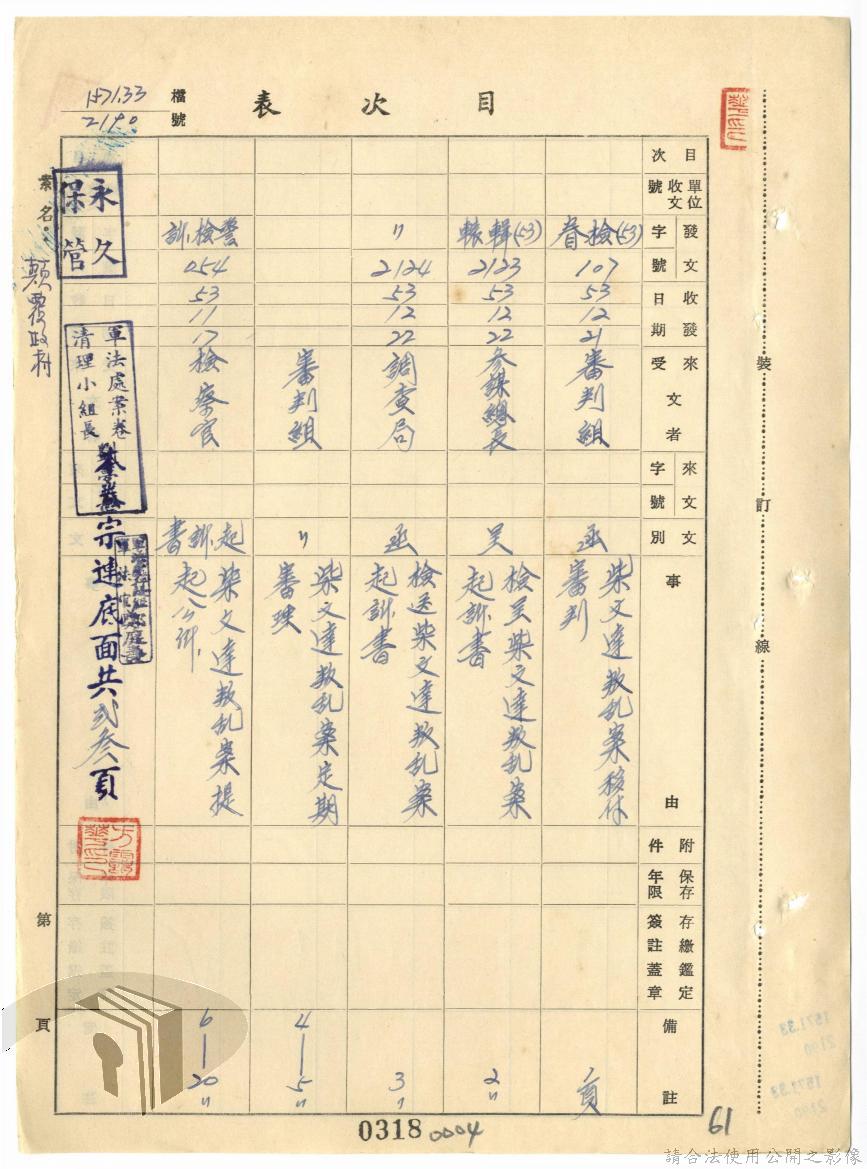 目次表
檔號
1571.33
2190
目次
單位收文號
發文字號
收發日期
來文受文者
來文字號
文別
事由
附件
保存年限
存繳鑑定簽註蓋章
備註
(53)
107
53
12
21
審判組
函
柴文達叛乱案移付
審判
1頁
(53)
2123
53
12
22
參謀總長
呈
檢呈柴文達叛乱案
起訴書
2〃
〃
2124
53
12
22
調查局
函
檢送柴文達叛乱案
起訴書
3〃
審判組
〃
柴文達叛乱案定期
審理
4—5〃
警檢訴
054
53
11
17
檢察官
起訴書
柴文達叛乱案提
起公訴
6—20〃
永久保管
案名:顛覆政府
軍法處案卷
清理小組長
本卷宗連底面共弍叁頁
第頁
裝訂線
0318
0004
61
1571.33
2190
1571.33
2190
請合法使用公開之影像